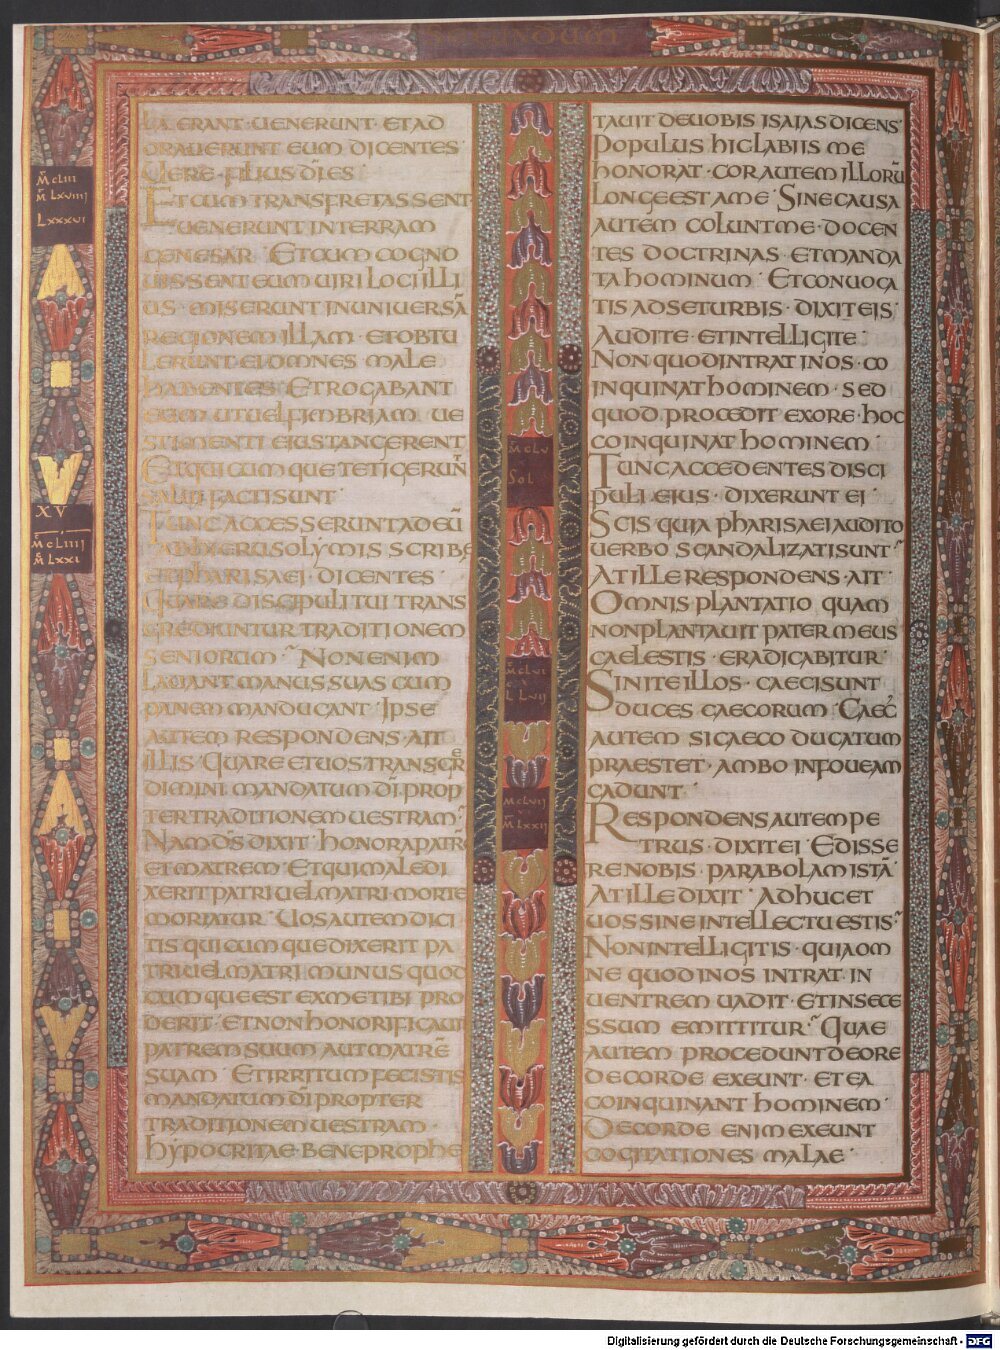 SECUNDUM
LA ERANT · UENERUNT · ET AD
ORAUERUNT EUM DICENTES ·
UERE · FILIUS DĪ ES ·
ET CUM TRANSFRETASSENT
UENERUNT IN TERRAM
GENESAR · ET CUM COGNO
UISSENT EUM UIRI LOCI ILLI
US · MISERUNT IN UNIUERSĀ
REGIONEM ILLAM · ET OBTU
LERUNT EI OMNES MALE
HABENTES · ET ROGABANT
EUM UT UEL FIMBRIAM UE
STIMENTI EIUS TANGERENT
ET QUICUMQUE TETIGERUN̄
SALUI FACTI SUNT ·
TUNC ACCESSERUNT AD EŪ
AB HIERUSOLYMIS SCRIBE
ET PHARISAEI · DICENTES ·
QUARE DISCIPULI TUI TRANS
GREDIUNTUR TRADITIONEM
SENIORUM · NON ENIM
LAUANT MANUS SUAS CUM
PANEM MANDUCANT · IPSE
AUTEM RESPONDENS · AIT
ILLIS · QUARE ET UOS TRANSGRE
DIMINI MANDATUM DĪ PROP
TER TRADITIONEM UESTRAM ·
NAM DS̄ DIXIT · HONORA PATRĒ
ET MATREM · ET QUI MALEDI
XERIT PATRI UEL MATRI MORTE
MORIATUR · UOS AUTEM DICI
TIS QUICUMQUE DIXERIT PA
TRI UEL MATRI MUNUS QUOD
CUMQUE EST EX ME TIBI PRO
DERIT · ET NON HONORIFICAUIT
PATREM SUUM AUT MATRĒ
SUAM · ET IRRITUM FECISTIS
MANDATUM DĪ PROPTER
TRADITIONEM UESTRAM ·
HYPOCRITAE · BENE PROPHE
TAUIT DE UOBIS ISAIAS DICENS ·
POPULUS HIC LABIIS ME
HONORAT · COR AUTEM ILLORŪ
LONGE EST A ME · SINE CAUSA
AUTEM COLUNT ME · DOCEN
TES DOCTRINAS ET MANDA
TA HOMINUM · ET CONUOCA
TIS AD SE TURBIS · DIXIT EIS ·
AUDITE ET INTELLIGITE ·
NON QUOD INTRAT IN OS · CO
INQUINAT HOMINEM · SED
QUOD PROCEDIT EX ORE · HOC
COINQUINAT HOMINEM ·
TUNC ACCEDENTES DISCI
PULI EIUS · DIXERUNT EI ·
SCIS QUIA PHARISAEI AUDITO
UERBO SCANDALIZATI SUNT ·
AT ILLE RESPONDENS · AIT ·
OMNIS PLANTATIO QUAM
NON PLANTAUIT PATER MEUS
CAELESTIS · ERADICABITUR ·
SINITE ILLOS · CAECI SUNT
DUCES CAECORUM · CAEC'
AUTEM SI CAECO DUCATUM
PRAESTET · AMBO IN FOUEAM
CADUNT ·
RESPONDENS AUTEM PE
TRUS · DIXIT EI · EDISSE
RE NOBIS · PARABOLAM ISTĀ ·
AT ILLE DIXIT · ADHUC ET
UOS SINE INTELLECTU ESTIS ·
NON INTELLIGITIS · QUIA OM
NE QUOD IN OS INTRAT · IN
UENTREM UADIT · ET IN SECE
SSUM EMITTITUR · QUAE
AUTEM PROCEDUNT DE ORE
DE CORDE EXEUNT · ET EA
COINQUINANT HOMINEM ·
DE CORDE ENIM EXEUNT
COGITATIONES MALAE ·
M̄ CLIII
M̄ LXVIIII
LXXXVI
XV
M̄ CLIIII
M̄ LXXI
M̄ CLV
SOL
M̄ CLVI
L LVII
M̄ CLVII
M̄ LXXII
Digitalisierung gefördert durch die Deutsche Forschungsgemeinschaft - DFG